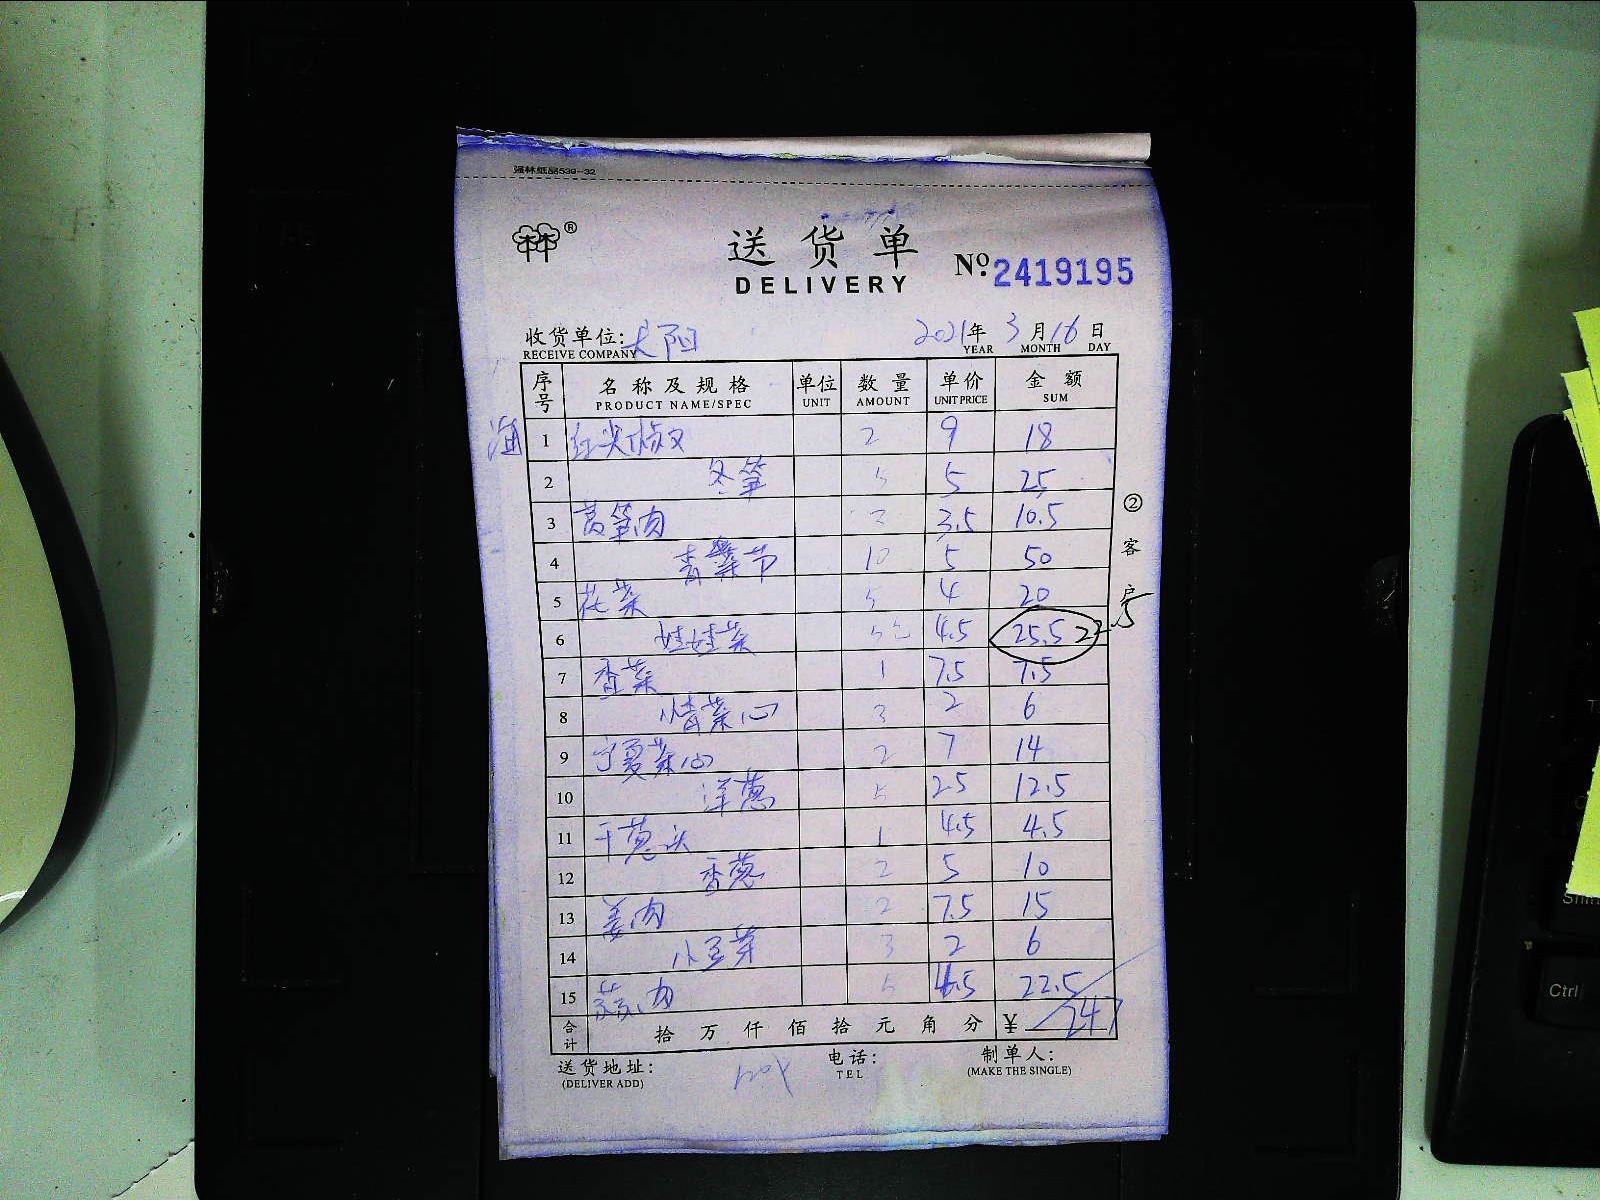 强林纸品539-32
林®
送货单
DELIVERY
No. 2419195
收货单位: 太阳 2021年 3月16日
RECEIVE COMPANY YEAR MONTH DAY
序号 名称及规格 单位 数量 单价 金额
PRODUCT NAME/SPEC UNIT AMOUNT UNIT PRICE SUM
1 红尖椒 2 9 18
2 冬笋 5 5 25
3 莴笋肉 3.5 10.5
4 青 节 10 5 50
5 花菜 5 4 20
6 娃娃菜 5 4.5 25.5 22.5
7 香菜 1 7.5 7.5
8 菜心 3 2 6
9 宁夏菜心 2 7 14
10 洋葱 5 2.5 12.5
11 干葱头 1 4.5 4.5
12 香葱 2 5 10
13 姜肉 2 7.5 15
14 小豆芽 3 2 6
15 肉 5 4.5 22.5
合计 拾万仟佰拾元角分 ¥ 247
送货地址: 电话: 制单人:
(DELIVER ADD) TEL (MAKE THE SINGLE)
② 客户
Shift
Ctrl